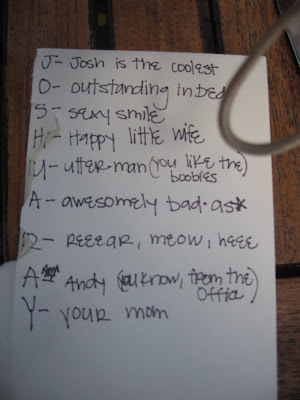 J- Josh is the coolest
O- outstanding in bed
S- sexy smile
H- Happy little wife
U- utter-man (you like the
boobies)
A- awesomely bad-as*
R- REEEAR, meow, heee
A- Andy (you know, from the
Office)
Y- your mom